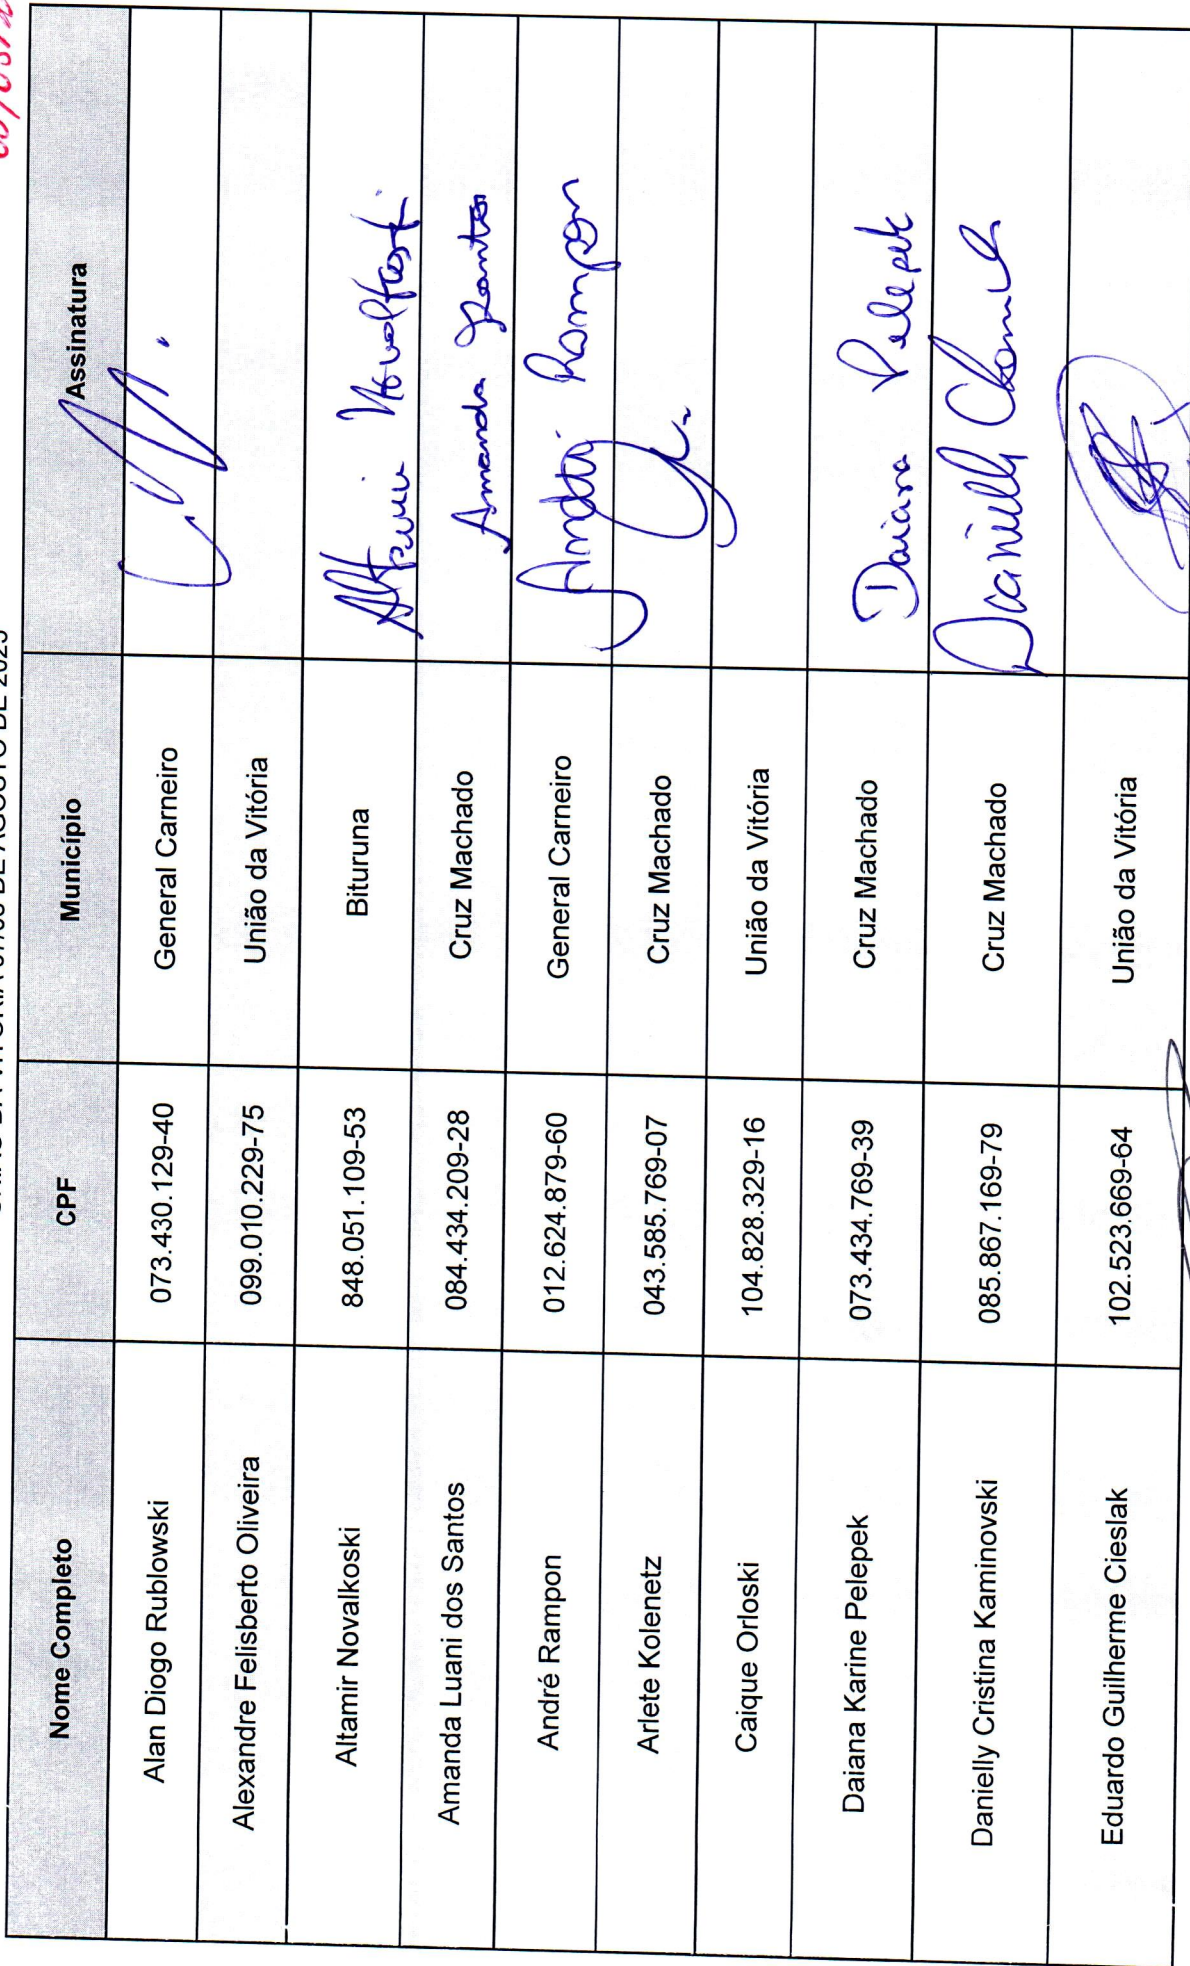 AGOSTO DE 2023
Nome Completo CPF Município Assinatura
Alan Diogo Rublowski 073.430.129-40 General Carneiro
Alexandre Felisberto Oliveira 099.010.229-75 União da Vitória
Altamir Novalkoski 848.051.109-53 Bituruna Altamir Novalkoski
Amanda Luani dos Santos 084.434.209-28 Cruz Machado Amanda Santos
André Rampon 012.624.879-60 General Carneiro André Rampon
Arlete Kolenetz 043.585.769-07 Cruz Machado
Caique Orloski 104.828.329-16 União da Vitória
Daiana Karine Pelepek 073.434.769-39 Cruz Machado Daiana Pelepek
Danielly Cristina Kaminovski 085.867.169-79 Cruz Machado Danielly
Eduardo Guilherme Cieslak 102.523.669-64 União da Vitória